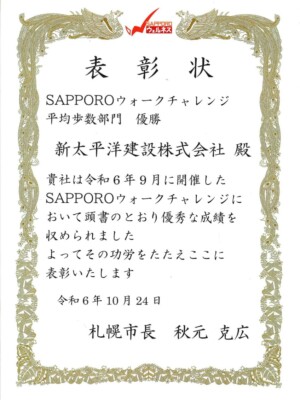 SAPPORO
ウェルネス
表彰状
SAPPOROウォークチャレンジ
平均歩数部門　優勝
新太平洋建設株式会社 殿
貴社は令和6年9月に開催した
SAPPOROウォークチャレンジに
おいて頭書のとおり優秀な成績を
収められました
よってその功労をたたえここに
表彰いたします
令和6年10月24日
札幌市長　秋元 克広